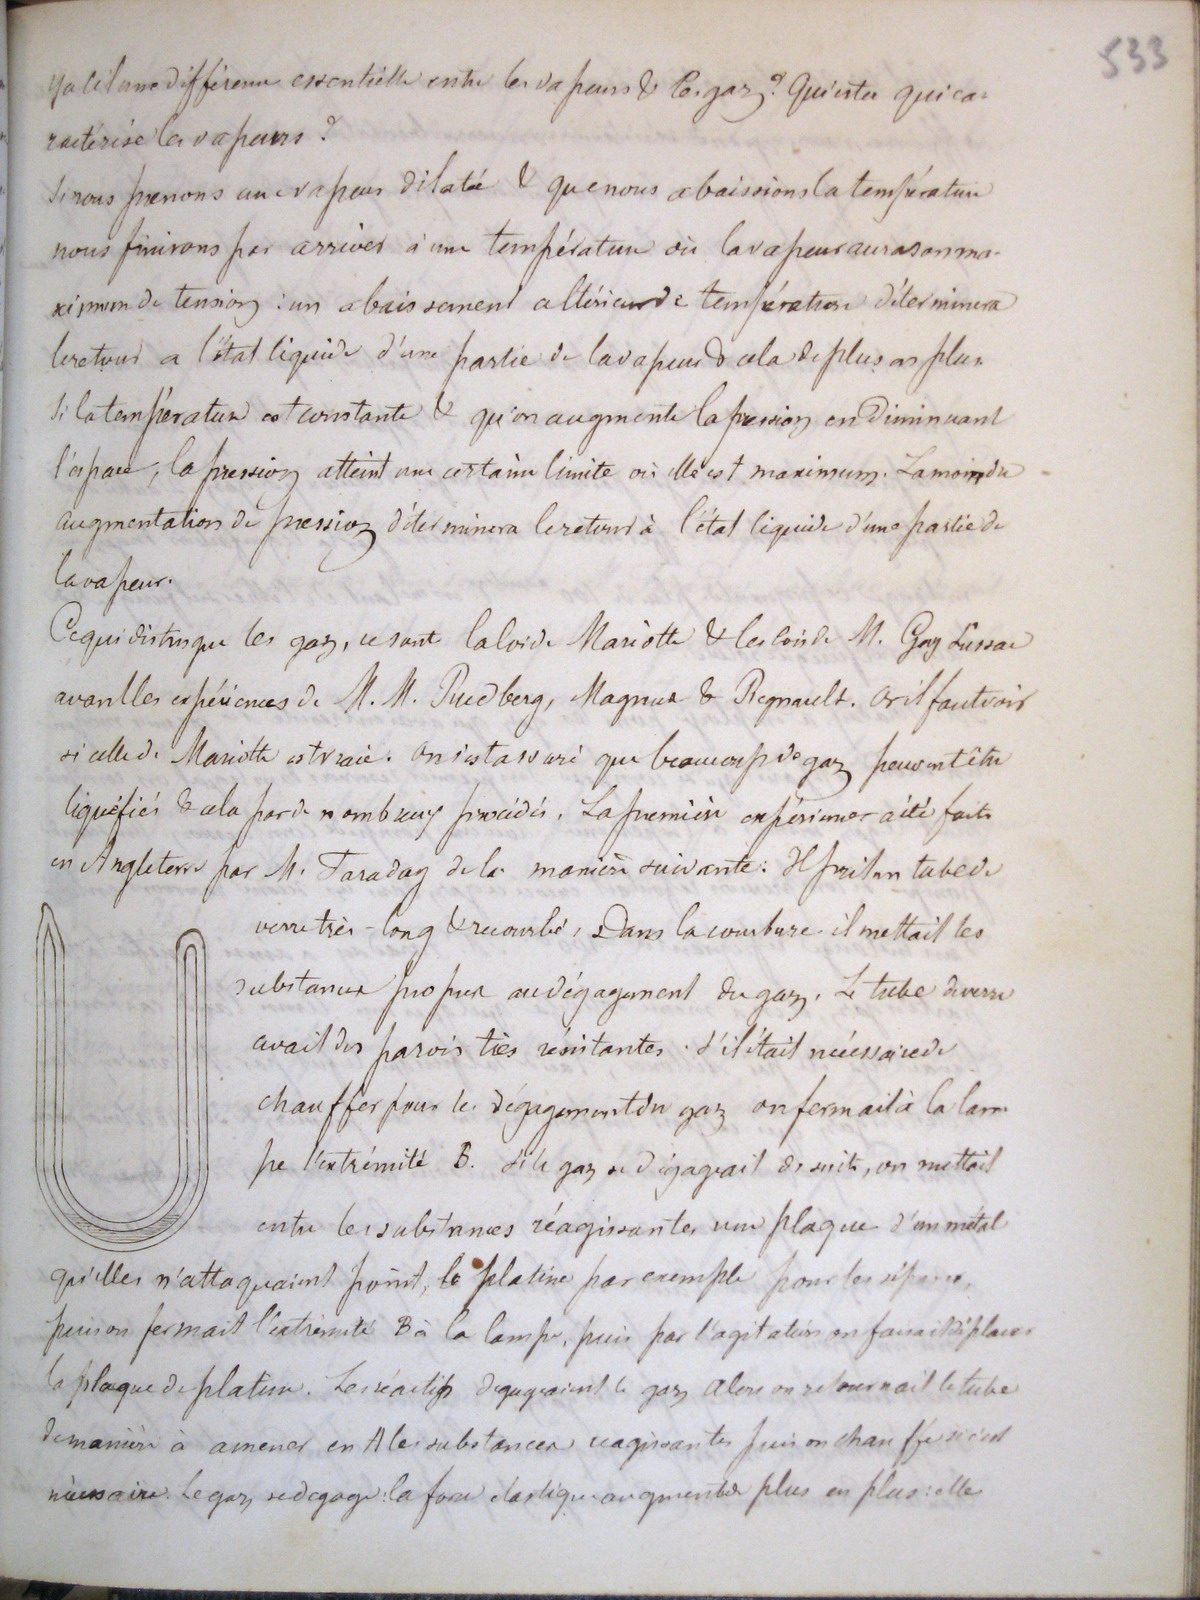 533
Y a t'il une différence essentielle entre les vapeurs & les gaz? Qu'est ce qui ca-
ractérise les vapeurs?
Si nous prenons une vapeur dilatée & que nous abaissions la température
nous finirons par arriver à une température où la vapeur aura son ma-
ximum de tension : un abaissement ultérieur de température déterminera
le retour a l'état liquide d'une partie de la vapeur & cela de plus en plus.
Si la température est constante & qu'on augmente la pression en diminuant
l'espace, la pression atteint une certaine limite où elle est maximum. La moindre
augmentation de pression déterminera le retour à l'état liquide d'une partie de
la vapeur.
Ce qui distingue les gaz, ce sont la loi de Mariotte & les lois de M. Gay Lussac
avant les expériences de M. M. Rudberg, Magnus & Regnault. Or il faut voir
si celle de Mariotte est vraie. On s'est assuré que beaucoup de gaz peuvent être
liquéfiés & cela par de nombreux procédés. La première expérience a été faite
en Angleterre par M. Faraday de la manière suivante: Il prit un tube de
verre très-long & recourbé, Dans la courbure il mettait les
substances propres au dégagement du gaz. Le tube de verre
avait des parois très résistantes. S'il était nécessaire de
chauffer pour le dégagement du gaz on fermait à la lam-
pe l'extrémité B. Si le gaz se dégageait de suite, on mettait
entre les substances réagissantes une plaque d'un métal
qu'elles n'attaquaient point, le platine par exemple pour les séparer,
puis on fermait l'extrémité B à la lampe, puis par l'agitation on faisait déplacer
la plaque de platine. Les réactifs dégageaient le gaz Alors on retournait le tube
de manière à amener en A les substances reagissantes puis on chauffe si c'est
nécessaire. Le gaz se degage : la force élastique augmente de plus en plus : elle